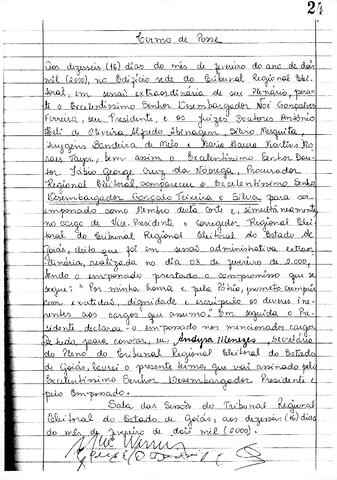 24
Termo de Posse
Aos dezesseis (16) dias do mês de fevereiro do ano de dois
mil (2000), no Edifício sede do Tribunal Regional Elei-
toral, em sessão extraordinária de seu Plenário, peran-
te o Excelentíssimo Senhor Desembargador Noé Gonçalves
Ferreira, seu Presidente, e os juízes Doutores Antônio
Heli de Oliveira, Alfredo Abinagem, Silvio Mesquita,
Euzébio Bandeira de Melo e Maria Maura Martins Mo-
rais Tayer, bem assim o Excelentíssimo Senhor Dou-
tor Fábio George Cruz da Nóbrega, Procurador
Regional Eleitoral, compareceu o Excelentíssimo Senhor
Desembargador Gonçalo Teixeira e Silva para ser
empossado como Membro desta Corte e, simultaneamente,
no cargo de Vice-Presidente e Corregedor Regional Elei-
toral do Tribunal Regional Eleitoral do Estado de
Goiás, eleito que foi em sessão administrativa extraor-
dinária, realizada no dia 03 de fevereiro de 2.000,
tendo o empossado prestado o compromisso que se
segue: "Por minha honra e pela Pátria, prometo cumprir
com exatidão, dignidade e escrúpulo os deveres ine-
rentes aos cargos que assumo." Em seguida o Pre-
sidente declarou o empossado nos mencionados cargos.
De tudo, para constar, eu, Menezes, Secretária
do Pleno do Tribunal Regional Eleitoral do Estado
de Goiás, lavrei o presente termo, que vai assinado pelo
Excelentíssimo Senhor Desembargador Presidente e
pelo Empossado.
Sala das Sessões do Tribunal Regional
Eleitoral do Estado de Goiás, aos dezesseis (16) dias
do mês de fevereiro de dois mil (2000).